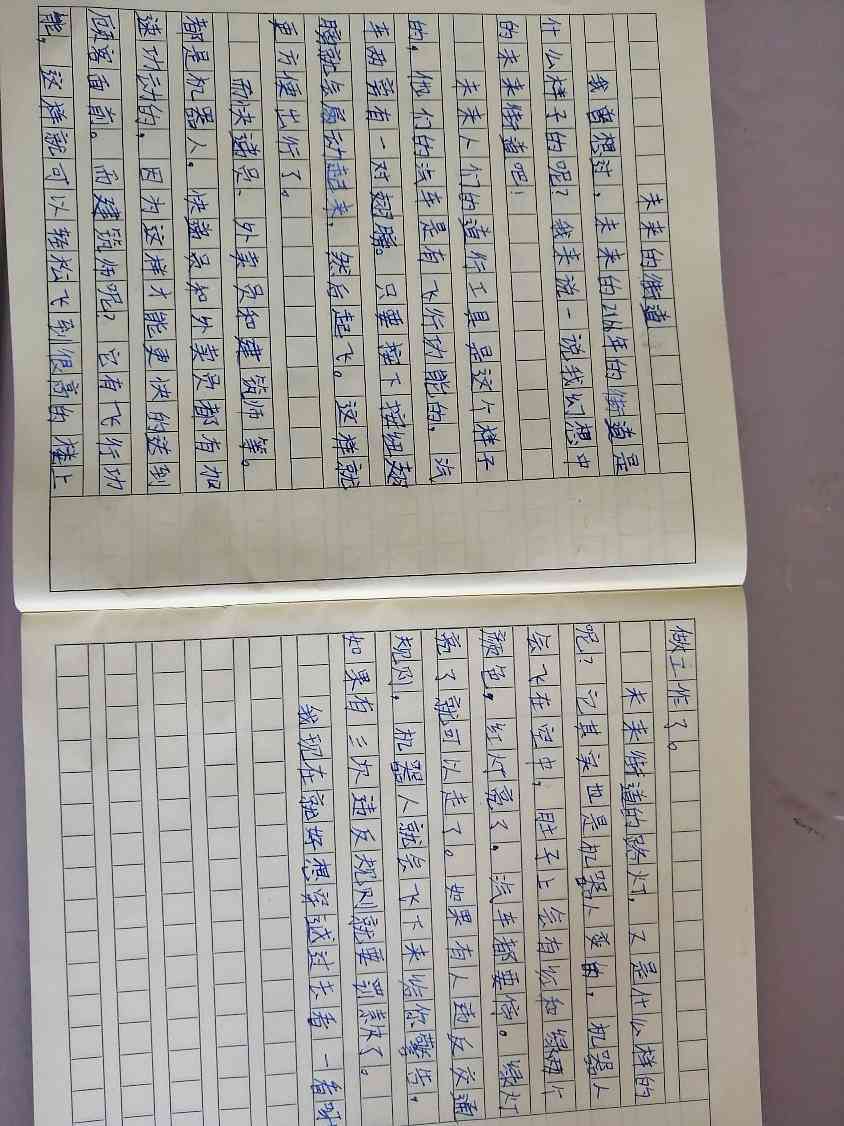 未来的街道
我曾想过,未来的216年的街道是
什么样子的呢?我来说一说我幻想中
的未来街道吧!
未来人们的道行工具是这个样子
的,他们的汽车是有飞行功能的,汽
车两旁有一对翅膀。只要按下按纽翅
膀就会扇动起来,然后起飞。这样就
更方便出行了。
而快递员、外卖员和建筑师等。
都是机器人。快递员和外卖员都有加
速功能的,因为这样才能更快的送到
顾客面前。而建筑师呢?它有飞行功
能,这样就可以轻松飞到很高的楼上
做工作了。
未来街道的路灯,又是什么样的
呢?它其实也是机器人变的,机器人
会飞在空中,肚子上会有红和绿两个
颜色,红灯亮了,汽车都要停。绿灯
亮了就可以走了。如果有人违反交通
规则,机器人就会飞下来给你警告,
如果有三次违反规则就要罚款了。
我现在就好想穿越过去看一看呀